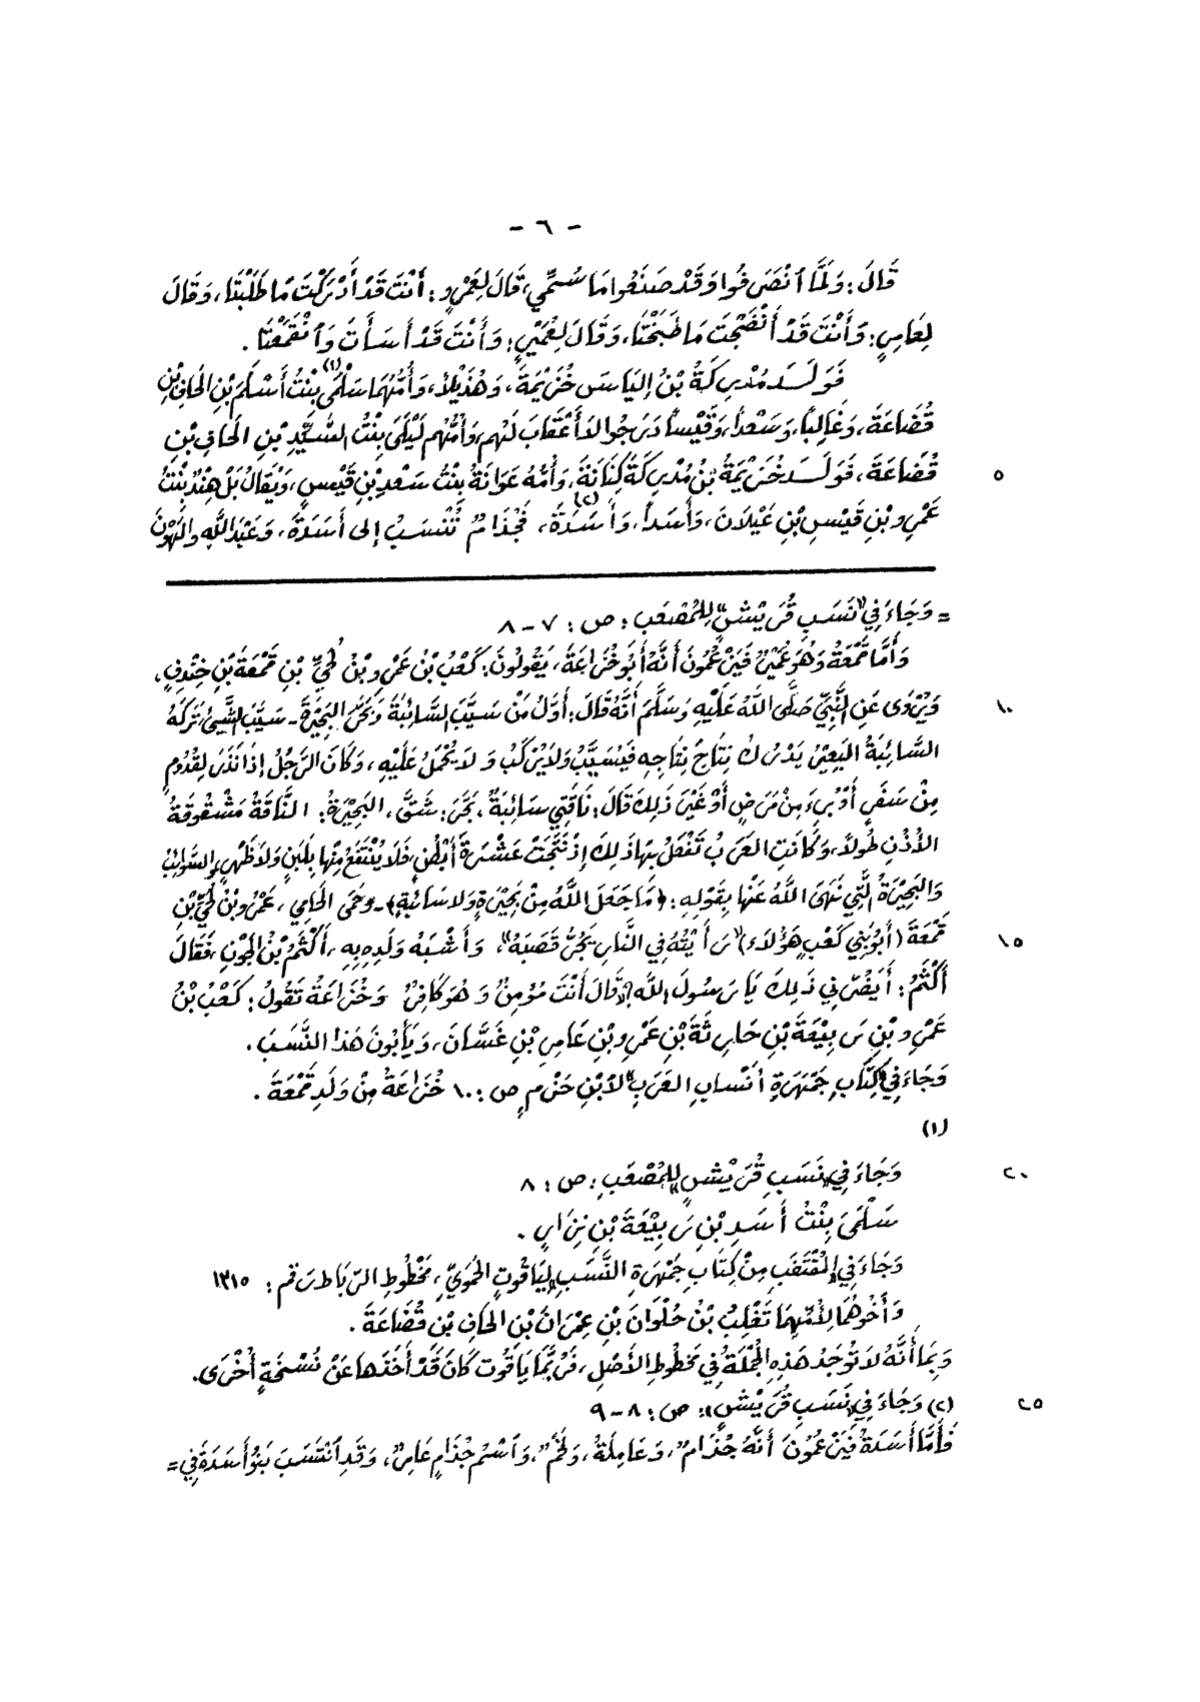 - ٦ -
قَالَ: وَلَمَّا ٱنْصَرَفُوا وَقَدْ صَنَعُوا مَا سُمِّيَ، قَالَ لِعَمْرٍو: أَنْتَ قَدْ أَدْرَكْتَ مَا طَلَبْتَا، وَقَالَ
لِعَامِرٍ: وَأَنْتَ قَدْ أَنْضَجْتَ مَا طَبَخْتَا، وَقَالَ لِعُمَيْرٍ: وَأَنْتَ قَدْ أَسَأْتَ وَٱنْقَمَعْتَا.
فَوَلَــدَ مُدْرِكَةُ بْنُ إلْيَاسَ خُزَيْمَةَ، وَهُذَيْلاً، وَأُمُّهُمَا سَلْمَى(١) بِنْتُ أَسْلُمَ بْنِ الحَافِ بْنِ
قُضَاعَةَ، وَغَالِبًا، وَسَعْداً، وَقَيْساً دَرَجُوا لاَ أَعْقَابَ لَهُم، وَأُمُّهُم لَيْلَى بِنْتُ السَّيِّدِ بْنِ الحَافِ بْنِ
قُضَاعَةَ، فَوَلَــدَ خُزَيْمَةُ بْنُ مُدْرِكَةَ كِنَانَةَ، وَأُمُّهُ عَوَانَةُ بِنْتُ سَعْدِ بْنِ قَيْسٍ، وَيُقَالُ بَلْ هِنْدُ بِنْتُ
٥
عَمْرِو بْنِ قَيْسِ بْنِ عَيْلَانَ، وَأَسَداً، وَأَسَدَةَ(٢)، فَجُذَامُ تُنْسَبُ إلى أَسَدَةَ، وَعَبْدَ اللَّهِ والهَوْنَ
= وَجَاءَ فِي "نَسَبِ قُرَيْشٍ" لِلمُصْعَبِ: ص: ٧-٨
وَأَمَّا قَمَعَةُ وَهُوَ عُمَيْرٌ فَيَزْعُمُونَ أَنَّهُ أَبُو خُزَاعَةَ، يَقُولُونَ: كَعْبُ بْنُ عَمْرِو بْنُ لُحَيِّ بْنِ قَمَعَةَ بْنِ خِنْدِفٍ،
وَيُرْوَى عَنِ النَّبِيِّ صَلَّى اللَّهُ عَلَيْهِ وَسَلَّمَ أَنَّهُ قَالَ: أَوَّلُ مَنْ سَيَّبَ السَّائِبَةَ وَبَحَّرَ البَحِيْرَةَ - سَيَّبَ الشَّيْءَ تَرَكَهُ
١٠
السَّائِبَةُ البَعِيْرُ يَدْرُكُ نِتَاجَ نِتَاجِهِ فَيُسَيَّبُ وَلاَ يُرْكَبُ وَلاَ يُحْمَلُ عَلَيْهِ، وَكَانَ الرَّجُلُ إذَا نَذَرَ لِقُدُومٍ
مِنْ سَفَرٍ أَوْ بُرِيءَ مِنْ مَرَضٍ أَوْ غَيْرَ ذَلِكَ قَالَ: نَاقَتِي سَائِبَةٌ، بَحَّرَ: شَقَّ، البَحِيْرَةُ: النَّاقَةُ مَشْقُوقَةُ
الأُذُنِ طُولاً، وَكَانَتِ العَرَبُ تَفْعَلُ بِهَا ذَلِكَ إذْ نَتَجَتْ عَشْرَةَ أَبْطُنٍ، فَلاَ يُنْتَفَعُ مِنْها بِلَبَنٍ وَلاَ ظَهْرٍ، والسَّوَائِبُ
وَالبَحِيْرَةُ الَّتِي نَهَى اللَّهُ عَنْها بِقَوْلِهِ: ﴿مَا جَعَلَ اللَّهُ مِنْ بَحِيْرَةٍ وَلاَ سَائِبَةٍ﴾ - وَحَمَى الحَامِي، عَمْرُو بْنُ لُحَيِّ بْنِ
قَمَعَةَ (أَبُو بَنِي كَعْبٍ هَؤُلاَءِ) "رَأَيْتُهُ فِي النَّارِ يَجُرُّ قَصَبَهُ"، وَأَشْبَهُ وَلَدِهِ بِهِ، أَكْثَمُ بْنُ الجَوْنِ، فَقَالَ
١٥
أَكْثَمُ: أَيَضُرُّنِي ذَلِكَ يَا رَسُولَ اللَّهِ؟ قَالَ أَنْتَ مُؤْمِنٌ وَهُوَ كَافِرٌ وَخُزَاعَةُ تَقُولُ: كَعْبُ بْنُ
عَمْرِو بْنِ رَبِيْعَةَ بْنِ حَارِثَةَ بْنِ عَمْرِو بْنِ عَامِرِ بْنِ غَسَّانَ، وَيَأْبُونَ هَذَا النَّسَبَ.
وَجَاءَ فِي "كِتَابِ جَمْهَرَةِ أَنْسَابِ العَرَبِ" لاَبْنِ حَزْمٍ ص: ١٠ خُزَاعَةُ مِنْ وَلَدِ قَمَعَةَ.
(١)
وَجَاءَ فِي "نَسَبِ قُرَيْشٍ" لِلمُصْعَبِ: ص: ٨
٢٠
سَلْمَى بِنْتُ أَسَدِ بْنِ رَبِيْعَةَ بْنِ نِزَارٍ.
وَجَاءَ فِي "المُقْتَضَبِ مِنْ كِتَابِ جَمْهَرَةِ النَّسَبِ" لِيَاقُوتٍ الحَمَوِيِّ، مَخْطُوطِ الرِّبَاطِ رَقم: ١٣١٥
وَأَخُوهُمَا لِأُمِّهِمَا تَغْلِبُ بْنُ حُلْوَانَ بْنِ عِمْرَانَ بْنِ الحَافِ بْنِ قُضَاعَةَ.
وَبِمَا أَنَّهُ لاَ تُوجَدُ هَذِهِ الجُمْلَةُ فِي مَخْطُوطِ الأَصْلِ، فَرُبَّمَا يَاقُوت كَانَ قَدْ أَخَذَهَا عَنْ نُسْخَةٍ أُخْرَى.
(٢) وَجَاءَ فِي "نَسَبِ قُرَيْشٍ": ص: ٨-٩
٢٥
فَأَمَّا أَسَدَةُ فَيَزْعُمُونَ أَنَّهُ جُذَامٌ، وَعَامِلَةُ، وَلَخْمٌ، وَٱسْمُ جُذَامٍ عَامِرٌ، وَقَدِ ٱنْتَسَبَ بَنُو أَسَدَةَ فِي =